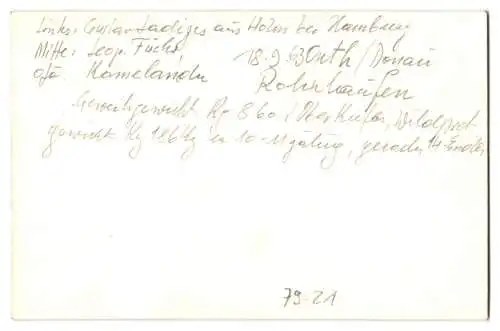 Links: Gustav Ladiges aus Holm bei Hamburg
Mitte: Leop. Fuchs
18.9.63 Orth / Donau
Rohrhaufen
Geweihgewicht Kg 8 60 / Oberkiefer, Wildpret
gewicht Kg 186 Kg 10-11 jährig, gerader 14 Ender
79-21